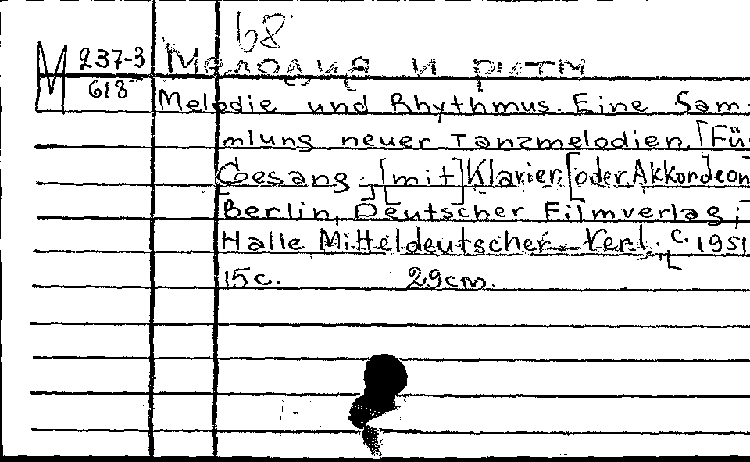 68
М 237-3 Мелодия и ритм
618
Melodie und Rhythmus. Eine Sam-
mlung neuer Tanzmelodien. [Fü
Gesang ; [mit] Klavier [oder Akkordeon
Berlin, Deutscher Filmverlag ;
Halle Mitteldeutscher Verl., c. 1951
15 с. 29 cm.